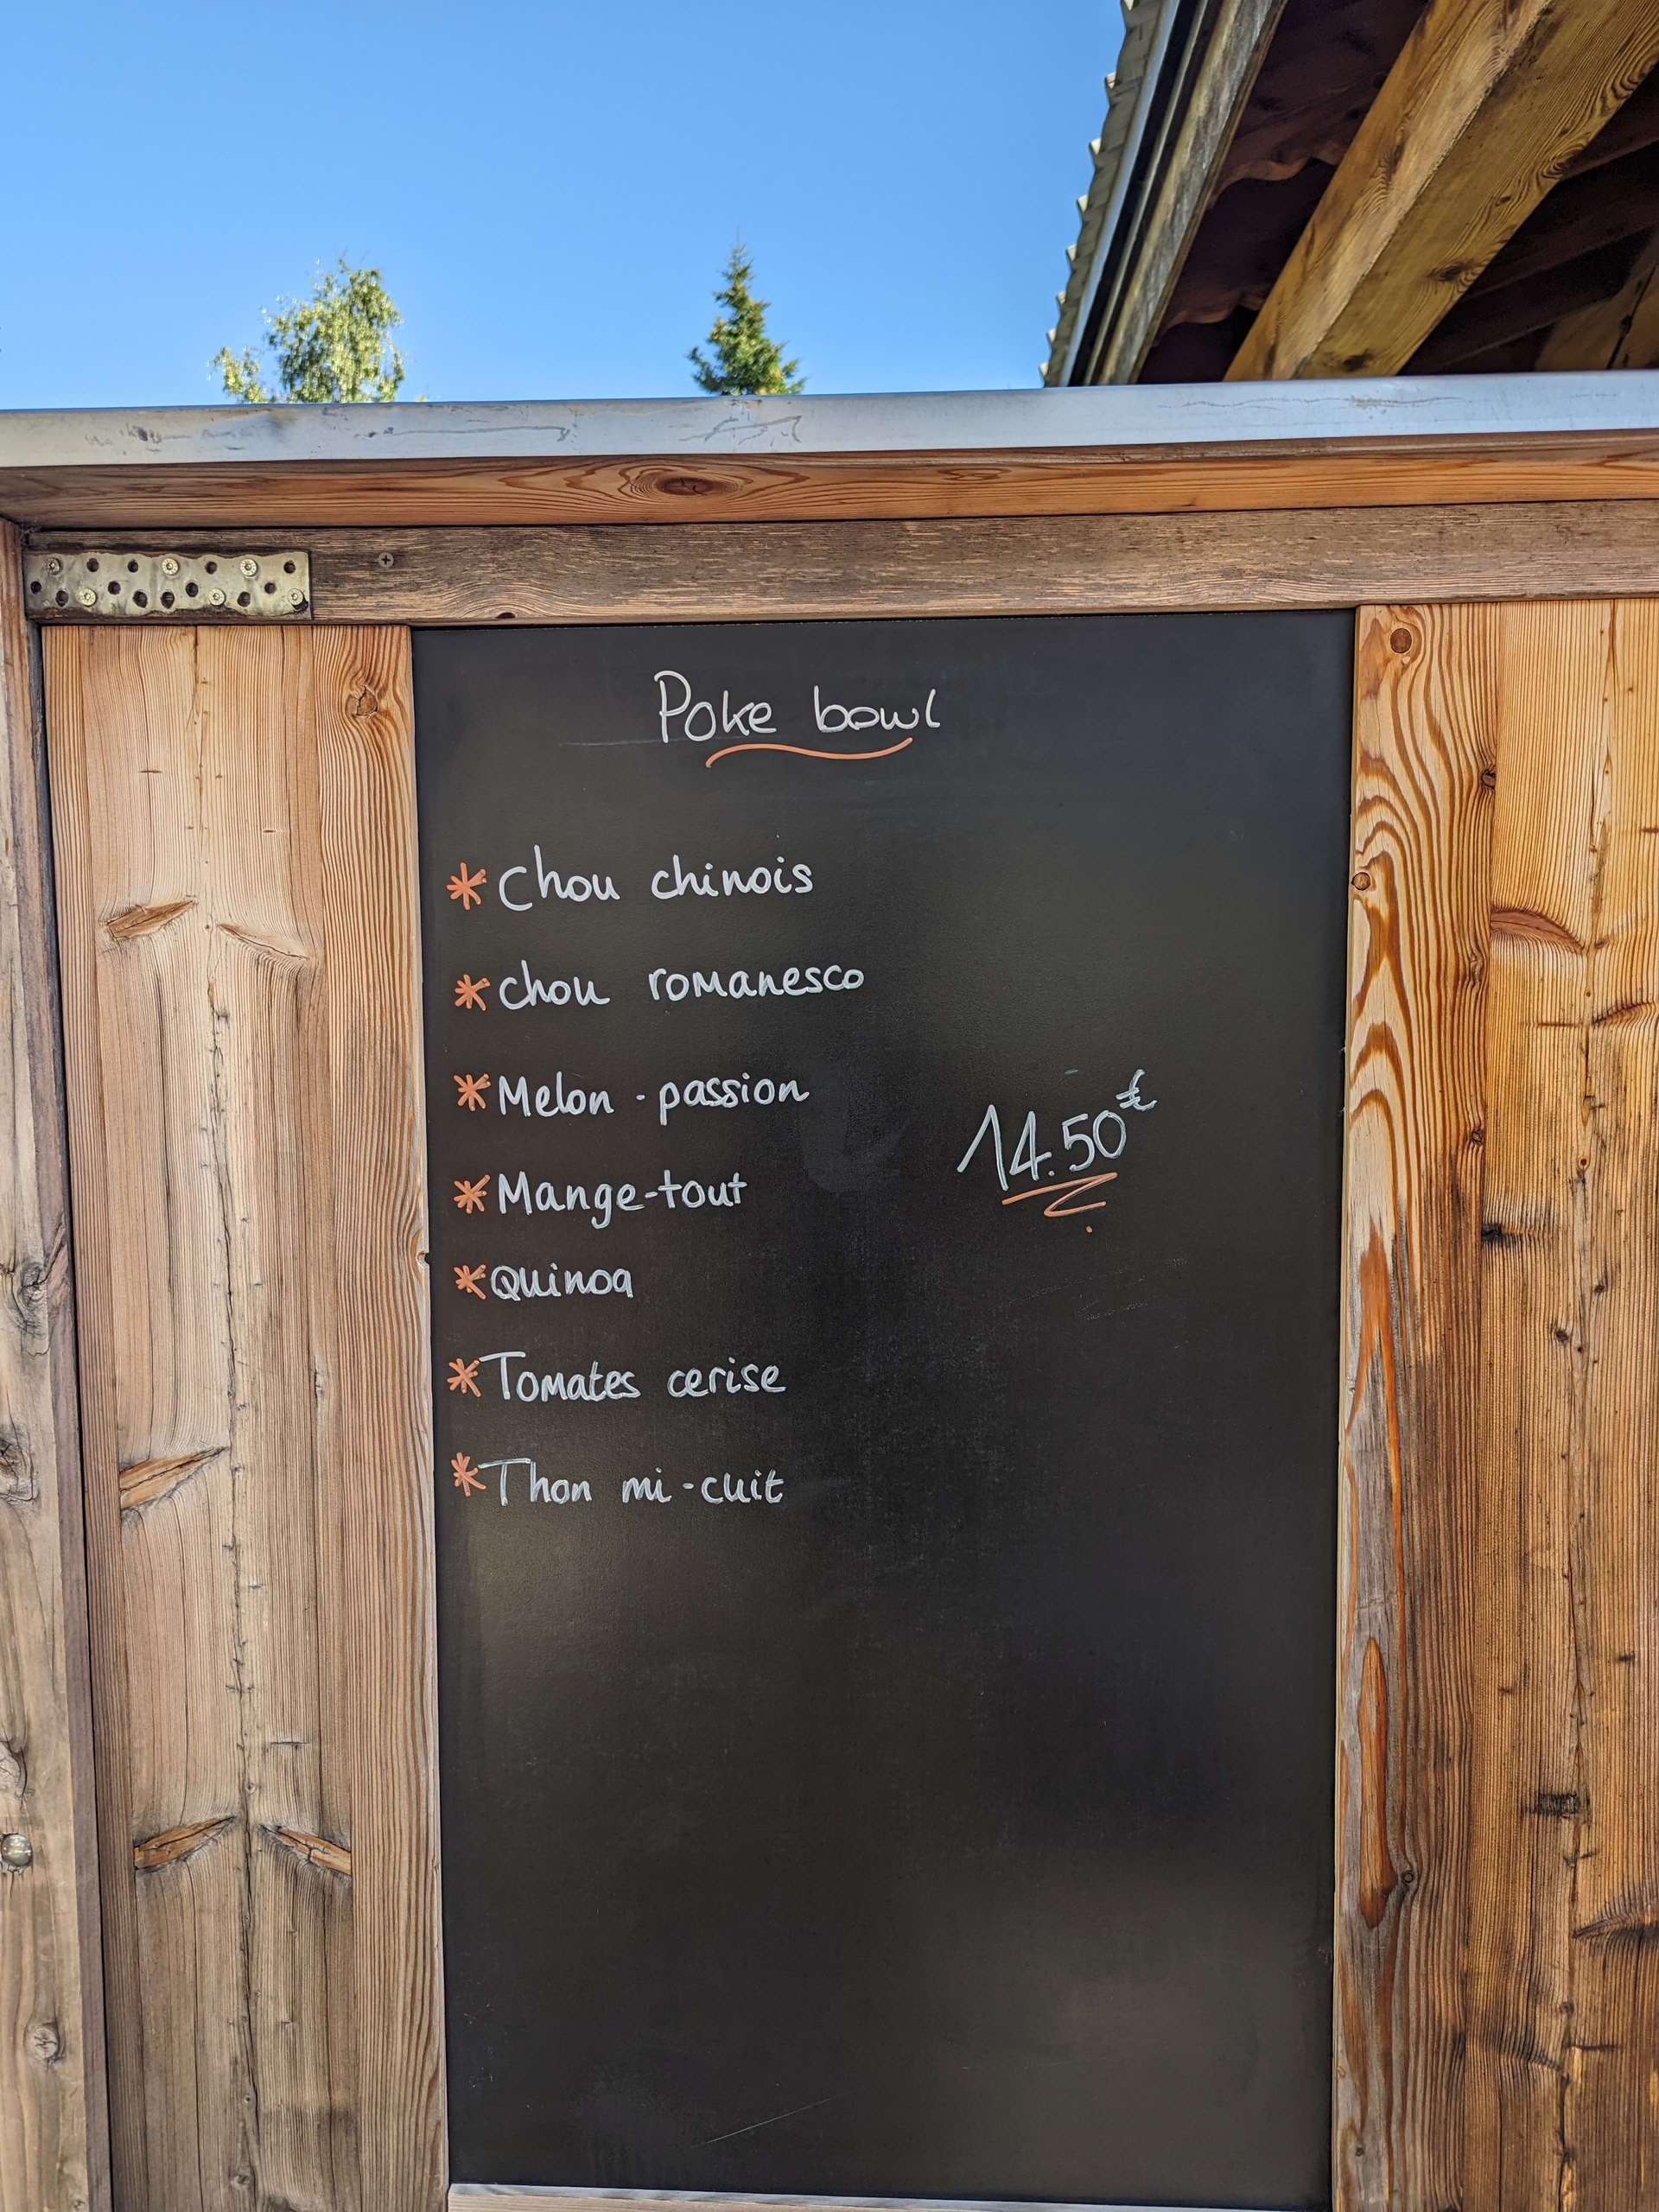 Poke bowl
* Chou chinois
* chou romanesco
* Melon - passion
* Mange-tout
* Quinoa
* Tomates cerise
* Thon mi-cuit
14.50€